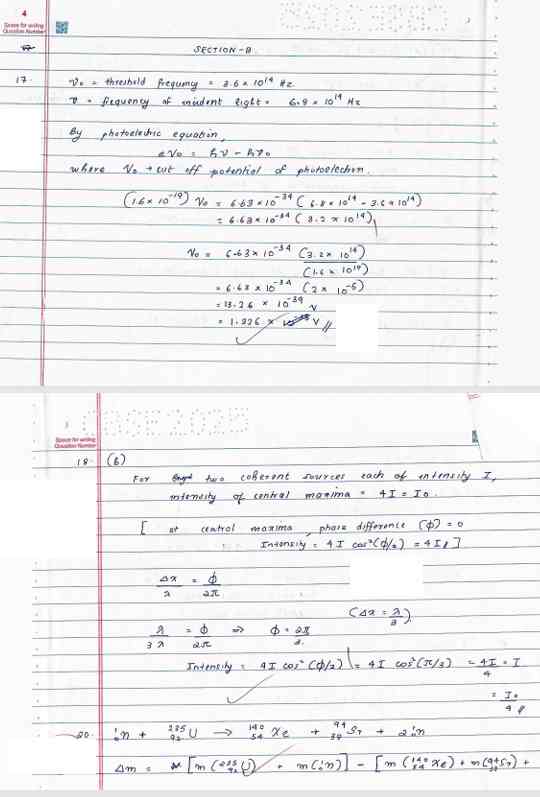 4
Space for writing
Question Number
SECTION-B
17.
ν₀ = threshold frequency = 3.6 × 10¹⁴ Hz
ν = frequency of incident light = 6.8 × 10¹⁴ Hz
By photoelectric equation,
eV₀ = hν - hν₀
where V₀ → cut off potential of photoelectron.
(1.6 × 10⁻¹⁹) V₀ = 6.63 × 10⁻³⁴ (6.8 × 10¹⁴ - 3.6 × 10¹⁴)
= 6.63 × 10⁻³⁴ (3.2 × 10¹⁴)
V₀ = 6.63 × 10⁻³⁴ (3.2 × 10¹⁴)
(1.6 × 10¹⁹)
= 6.63 × 10⁻³⁴ (2 × 10⁻⁵)
= 13.26 × 10⁻³⁹ V
= 1.326 × V
CBSE 2025
Space for writing
Question Number
18. (b)
For two coherent sources each of intensity I,
intensity of central maxima = 4I = I₀.
[ at central maxima, phase difference (ϕ) = 0
∴ Intensity = 4I cos²(ϕ/2) = 4I ]
Δx/λ = ϕ/2π
(Δx = λ/3)
λ/3λ = ϕ/2π ⇒ ϕ = 2π/3
Intensity = 4I cos² (ϕ/2) = 4I cos² (π/3) = 4I/4 = I
= I₀/4
20. ¹₀n + ²³⁵₉₂U → ¹⁴⁰₅₄Xe + ⁹⁴₃₈Sr + 2¹₀n
Δm = [m(²³⁵₉₂U) + m(¹₀n)] - [m(¹⁴⁰₅₄Xe) + m(⁹⁴₃₈Sr) +